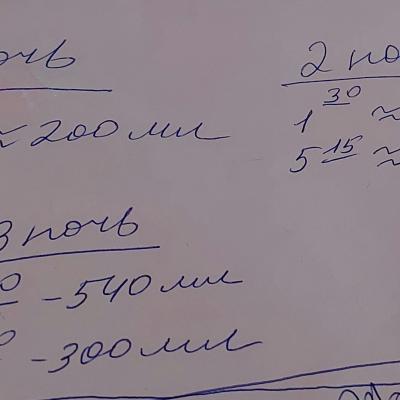 очь
≈ 200 мл
2 по
1 30 ≈
5 15 ≈
3 ночь
0 - 540 мл
0 - 300 мл